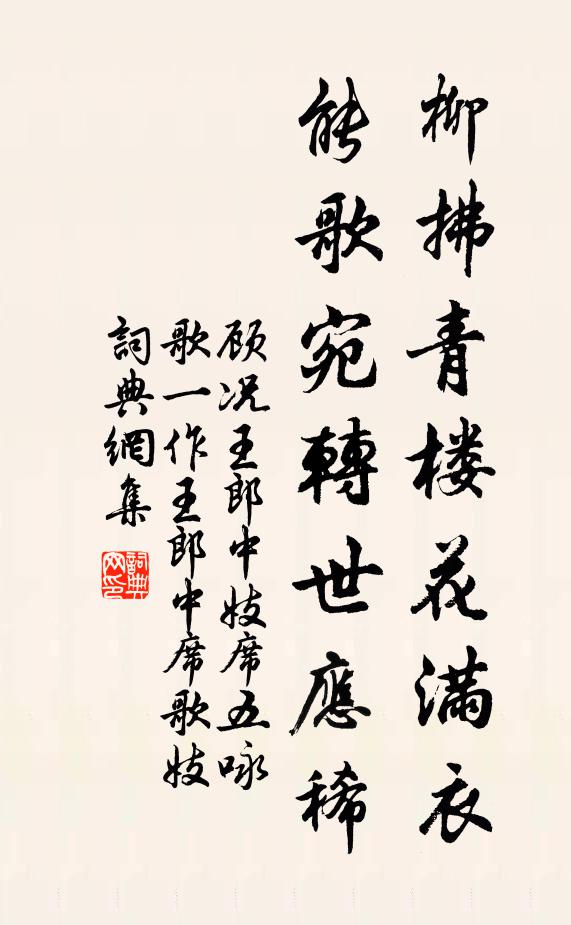 柳拂青楼花滿衣
能歌宛轉世應稀
顾况王郎中妓席五咏
歌一作王郎中席歌妓
詞典網集
詞典网印